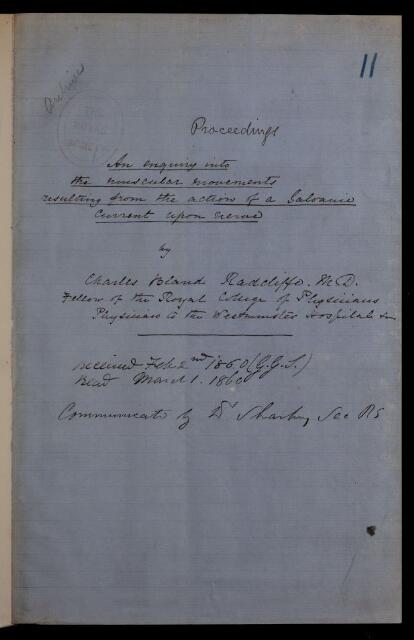 Archives
11
Proceedings
An enquiry into
the muscular movements
resulting from the action of a Galvanic
Current upon nerve
by
Charles Bland Radcliffe. M.D.
Fellow of the Royal College of Physicians
Physician to the Westminster Hospital &c
received Feb 2nd 1860 (G.G.S.)
Read March 1. 1860
Communicated by Dr Sharpey Sec RS